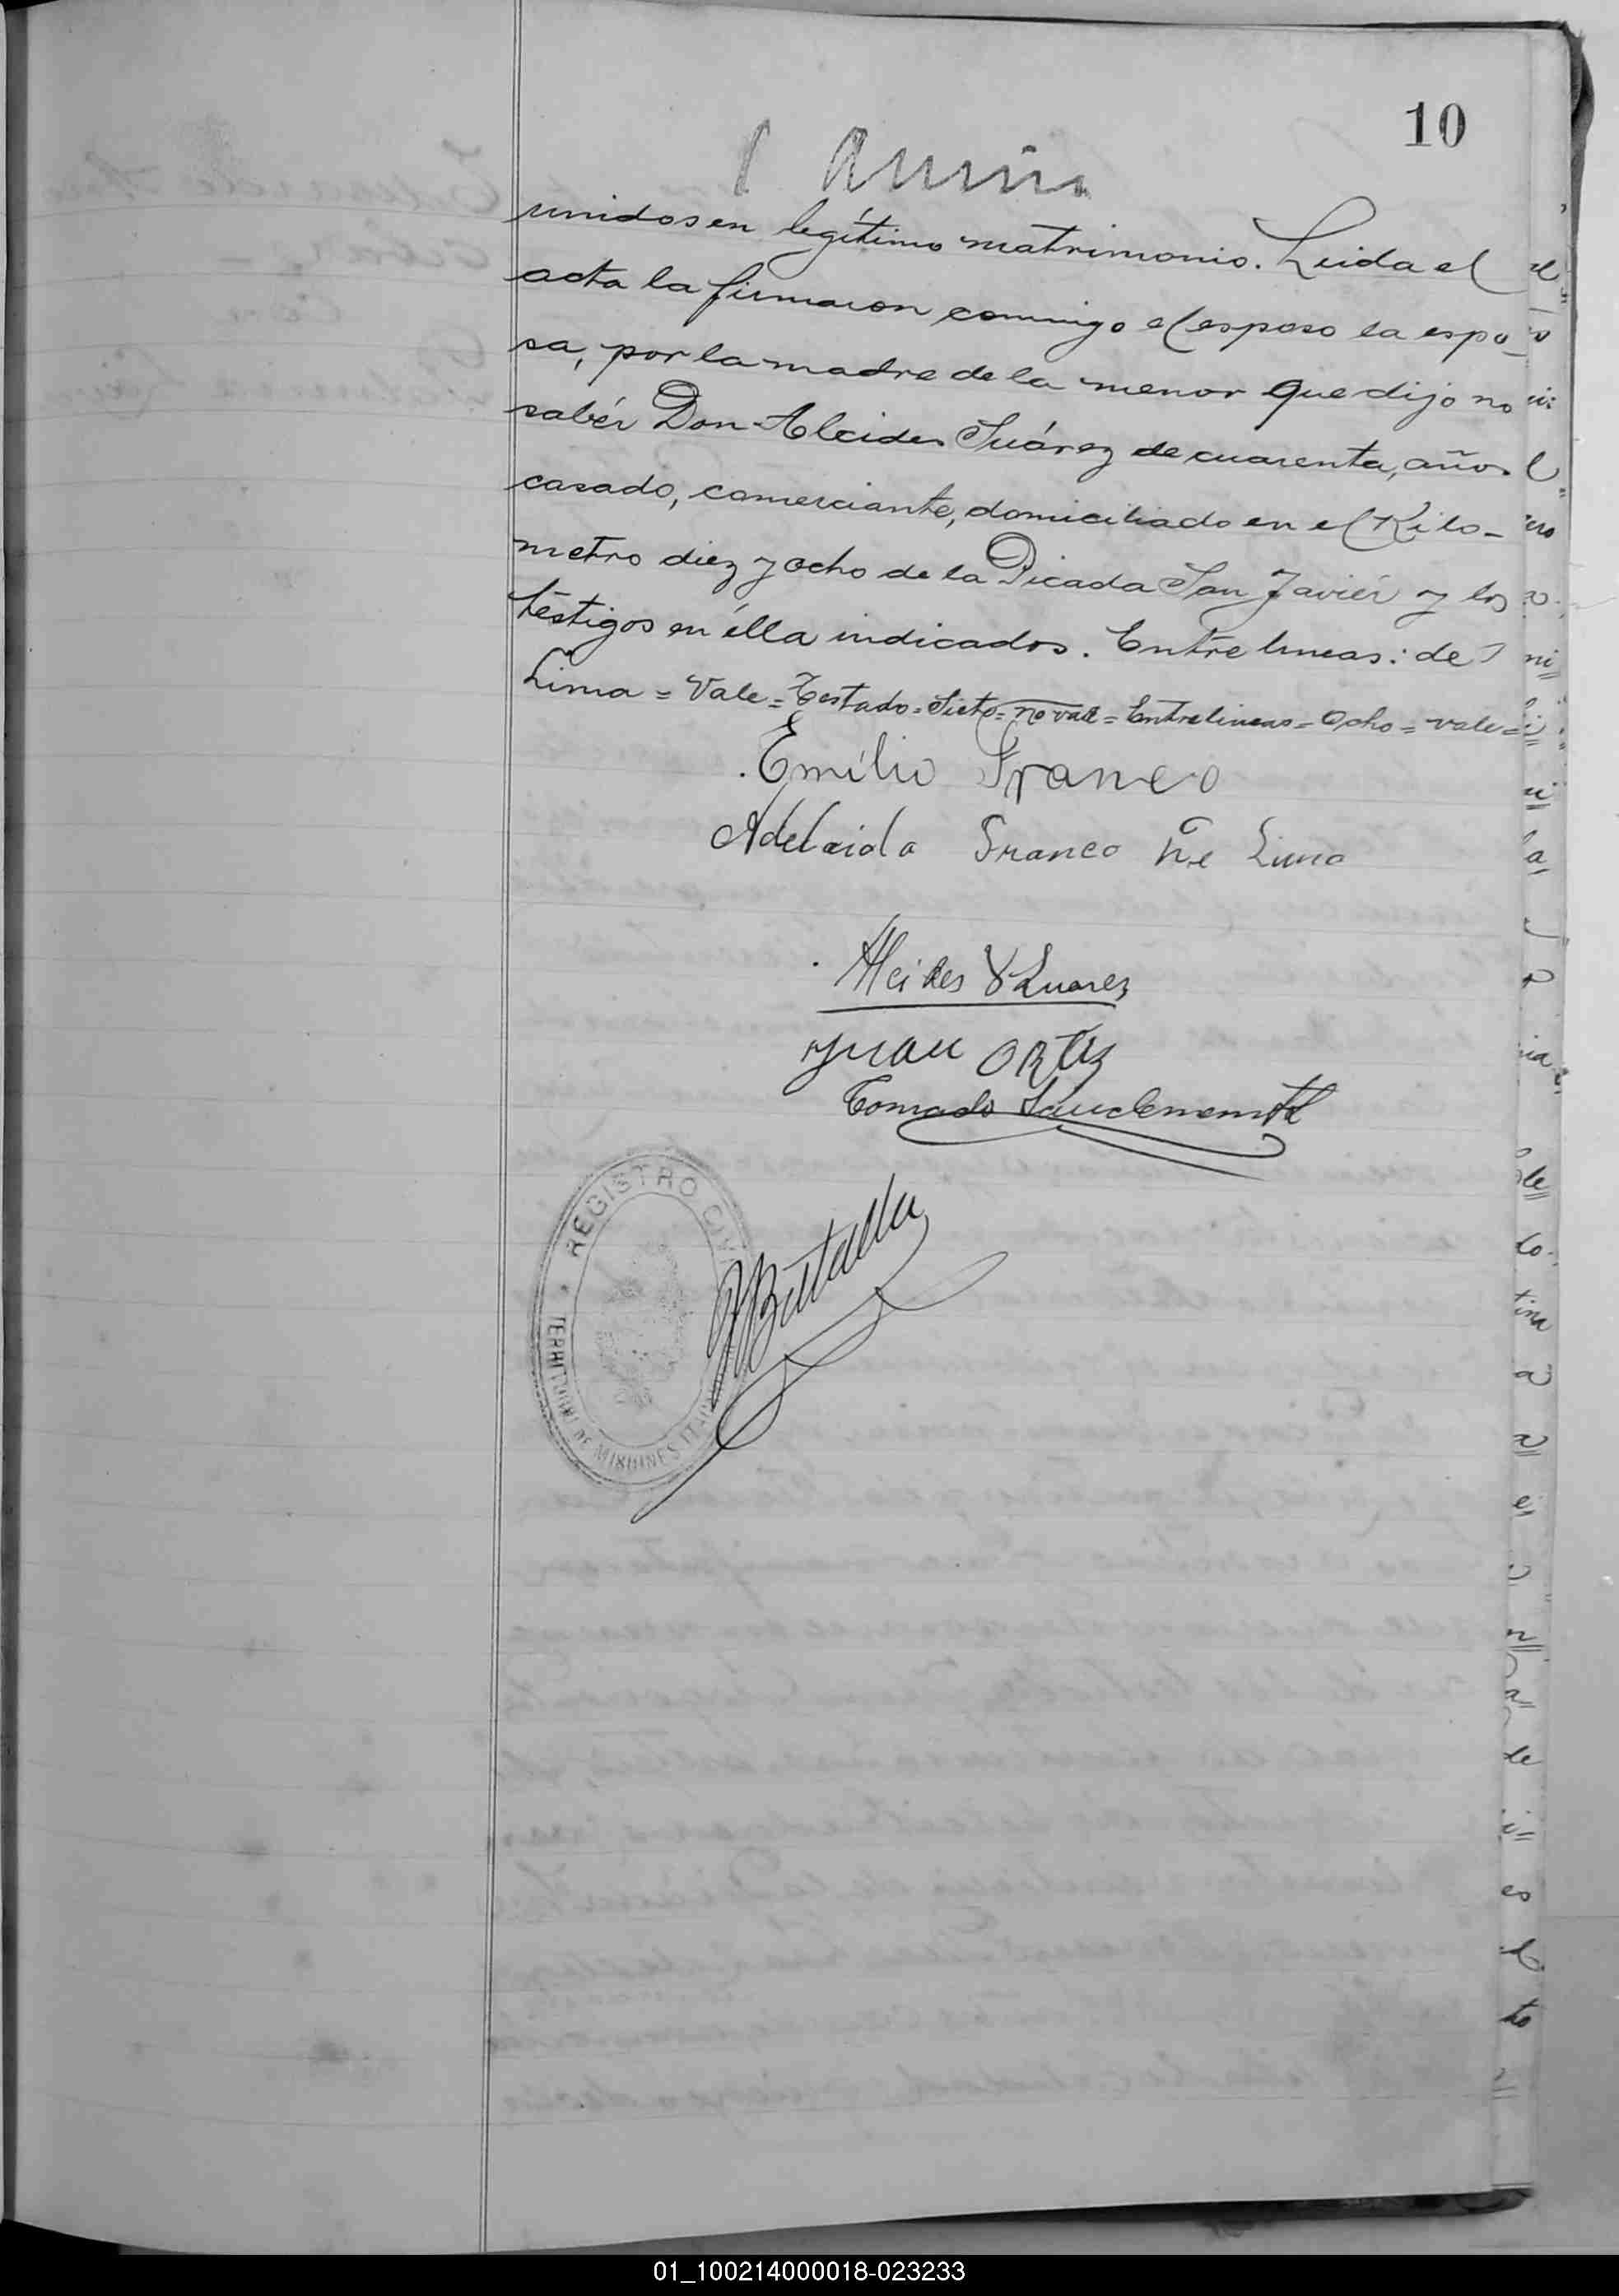 10
unidos en legítimo matrimonio. Leida el
acta la firmaron conmigo el esposo la espo-
sa, por la madre de la menor que dijo no
sabér Don Alcides Suárez de cuarenta, años
casado, comerciante, domiciliado en el Kilo-
metro diez y ocho de la Picada San Javiér y los
téstigos en élla indicados. Entre lineas: de
Lima = Vale = Testado = Siete = no vale = Entrelineas = Ocho = vale =
Emilio Franco
Adelaida Franco De Lima
Alcides Suarez
Juan ORtiz
REGISTRO CIVIL
TERRITORIO DE MISIONES
01_100214000018-023233